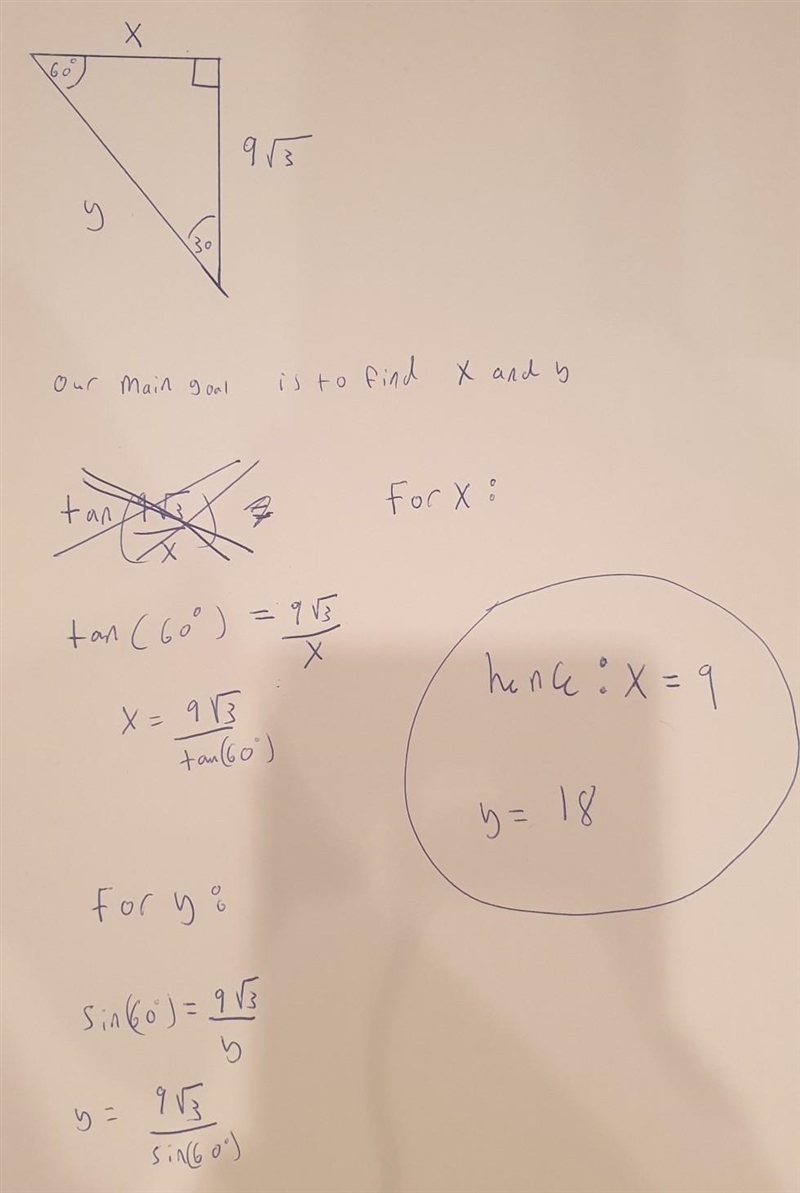 x
60°
9√3
y
30
our main goal is to find x and y
tan(9√3/x)
For x:
tan(60°) = 9√3/x
x = 9√3/tan(60°)
hence: x = 9
y = 18
For y:
sin(60°) = 9√3/y
y = 9√3/sin(60°)